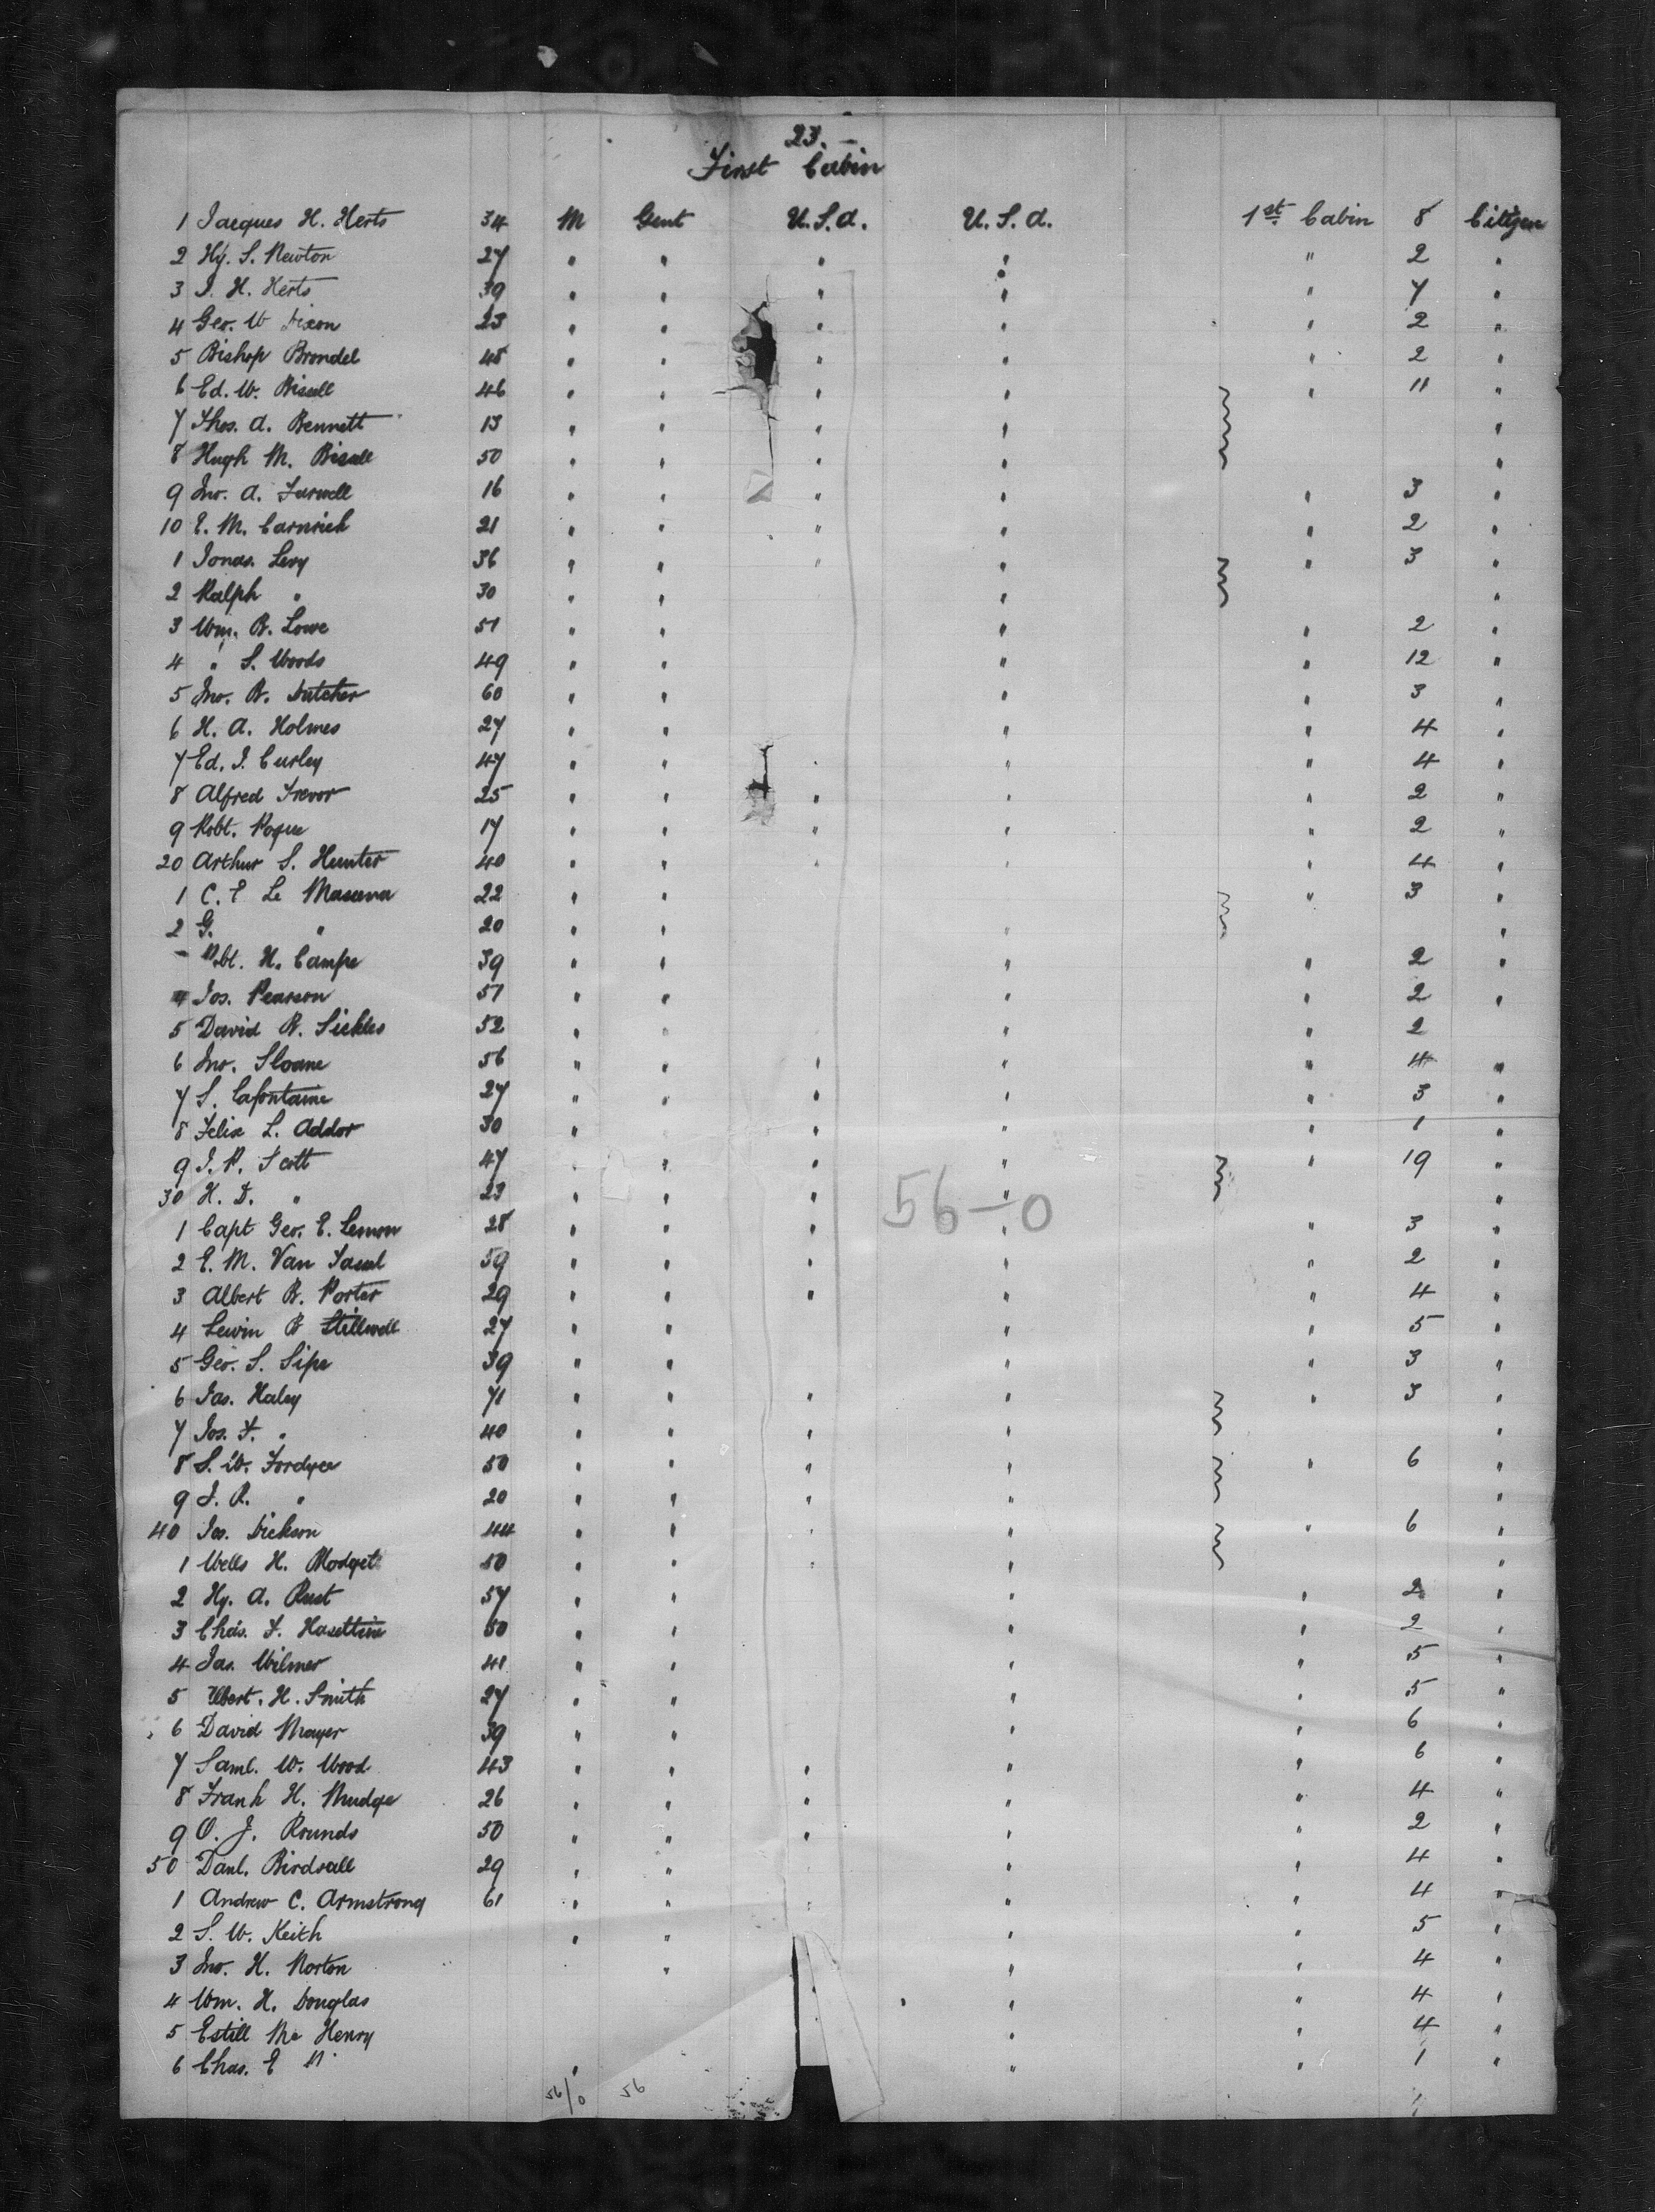 23.
First Cabin
1 Jacques H. Herts 34 M Gent U.S.A. U.S.A. 1st Cabin 8 Citizen
2 Hy. S. Newton 27 " " " " " 2 "
3 I. H. Herts 39 " " " " " 7 "
4 Geo. W Dixon 23 " " " " " 2 "
5 Bishop Brondel 45 " " " " " 2 "
6 Ed. W. Bissell 46 " " " " " 11 "
7 Thos. A. Bennett 13 " " " " "
8 Hugh M. Bissell 50 " " " " "
9 Jno. A. Farwell 16 " " " " " 3 "
10 E. M. Carnrick 21 " " " " " 2 "
1 Jonas. Levy 36 " " " " " 3 "
2 Ralph " 30 " " " "
3 Wm. B. Lowe 51 " " " " 2 "
4 " S. Woods 49 " " " " 12 "
5 Jno. B. Dutcher 60 " " " " 3 "
6 H. A. Holmes 27 " " " " 4 "
7 Ed. J. Curley 47 " " " " " 4 "
8 Alfred Trevor 25 " " " " " 2 "
9 Robt. Pogue 17 " " " " " 2 "
20 Arthur S. Hunter 40 " " " " " 4 "
1 C. E Le Massena 22 " " " 3 "
2 G. " 20 " " " "
Robt. H. Campe 39 " " " " 2 "
4 Jos. Pearson 51 " " " " 2 "
5 David B. Sickles 52 " " " " 2
6 Jno. Sloane 56 " " " " " 4 "
7 S. Lafontaine 27 " " " " " 3 "
8 Felix L. Addor 30 " " " " " 1 "
9 J. P. Scott 47 " " " " " 19 "
30 H. D. " 23 " " " " "
56-0
1 Capt Geo. E. Lemon 28 " " " " " 3 "
2 E. M. Van Tassel 59 " " " " " 2 "
3 Albert B. Porter 29 " " " " " 4 "
4 Lewin B Stillwell 27 " " " " 5 "
5 Geo. S. Sipe 39 " " " " 3 "
6 Jas. Haley 71 " " " " " 3 "
7 Jos. F. " 40 " " " " "
8 S. W. Fordyce 50 " " " " " 6 "
9 J. R. " 20 " " " " "
40 Jos. Dickson 44 " " " " " 6 "
1 Wells H. Blodget 50 " " " " "
2 Hy. A. Rust 57 " " " " 2 "
3 Chas. F. Haseltine 50 " " " " 2 "
4 Jas. Wilmer 41 " " " " 5 "
5 Elbert. H. Smith 27 " " " " 5 "
6 David Mayer 39 " " " " 6 "
7 Saml. W. Wood 43 " " " " " 6 "
8 Frank H. Mudge 26 " " " " " 4 "
9 O. J. Rounds 50 " " " " " 2 "
50 Danl. Birdsall 29 " " " " 4 "
1 Andrew C. Armstrong 61 " " " " 4 "
2 S. W. Keith " " " " 5 "
3 Jno. H. Norton " " " 4 "
4 Wm. H. Douglas " " 4 "
5 Estill Mc Henry " " 4 "
6 Chas. E " " " 1 "
56/0 56